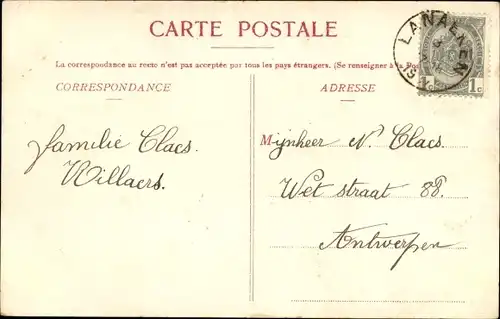 CARTE POSTALE
La correspondance au recto n'est pas acceptée par tous les pays étrangers. (Se renseigner à la Pos
CORRESPONDANCE
ADRESSE
LANAEKEN
1c 1c
familie Claes.
Willaers.
Mijnheer N. Claes.
Wet straat 88.
Antwerpen